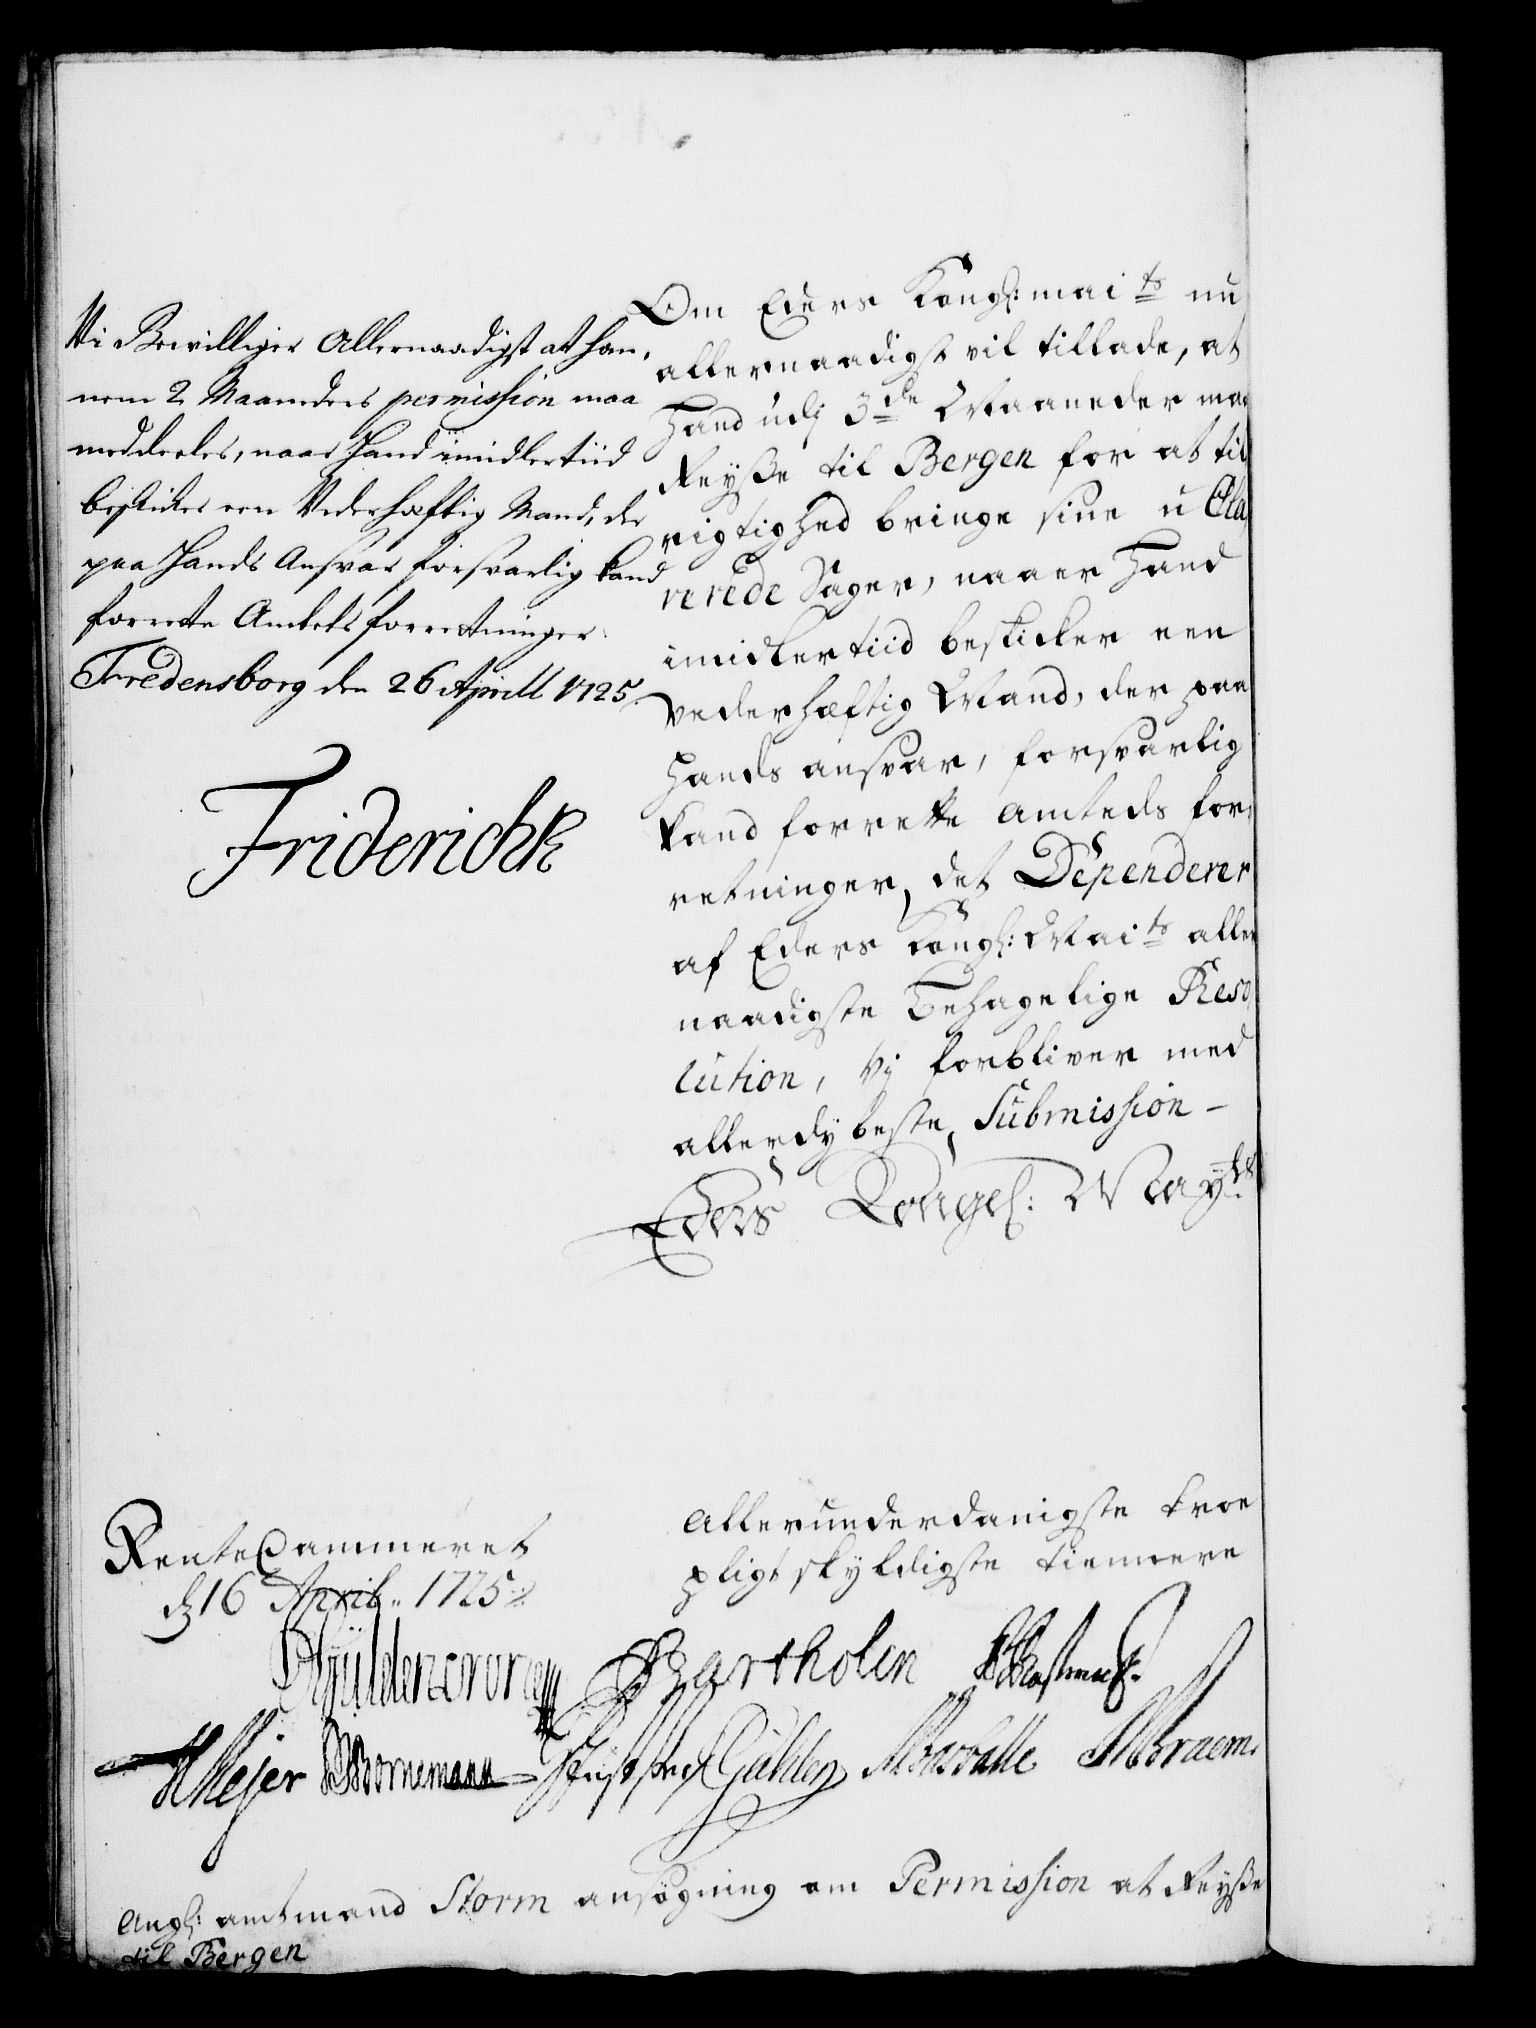 Vi Bevilliger Allernaadigst at han,
nem 2 Maaneders permission maa
meddeeles, naar Hand imidlertiid
beskicker een Vederhæftig Mand, der
paa Hands Ansvar forsvarlig kand
forrette Ambtets forretninger.
Fredensborg den 26 Aprill 1725.
Friderich R
Om Eders Kongl: mai ts nu
allernaadigst vil tillade, at
Hand udj 3de Maaneder maa
Reyße til Bergen for at til
rigtighed bringe sine u Cla,
rerede Sager, naaer Hand
imidlertiid beskicker een
vederhæftig Mand, der paa
Hands ansvar, forsvarlig
kand forrette Amteds for,
retninger, det Dependerer
af Eders Kongl: Mai ts aller
naadigste behagelige Reso,
lution, vj forbliver med
allerdybeste, Submission -
Eders Kongel: May ts
RenteCammeret
d 16 April. 1725.
Allerunderdanigste troe
pligtskyldigste tiennere
Gÿldencrone Bartholin
HMejer Bornemann Gulden Braem.
Angl: amtmand Storm ansøgning om Permission at Reyße
til Bergen